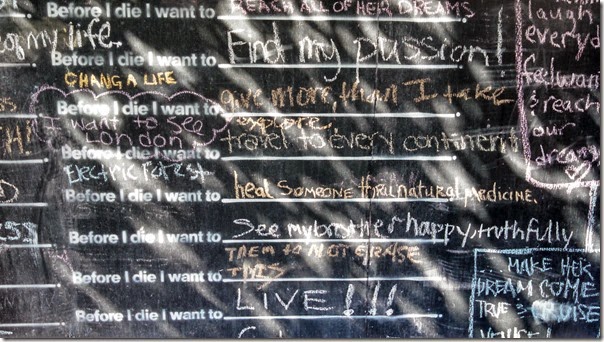 Before I die I want to REACH ALL OF HER DREAMS
of my life.
Before I die I want to Find my passion!
CHANG A LIFE
Before I die I want to give more, than I take
I want to see London!
explore
Before I die I want to travel to every continent
Electric Forest
Before I die I want to heal SOMEONE thru natural medicine.
Before I die I want to See my brother happy, truthfully
THEM to NOT ERASE
Before I die I want to THIS
Before I die I want to LIVE!!!
laugh
everyd
feelwan
& reach
our
dreams
... MAKE HER
DREAM COME
TRUE : CRUISE